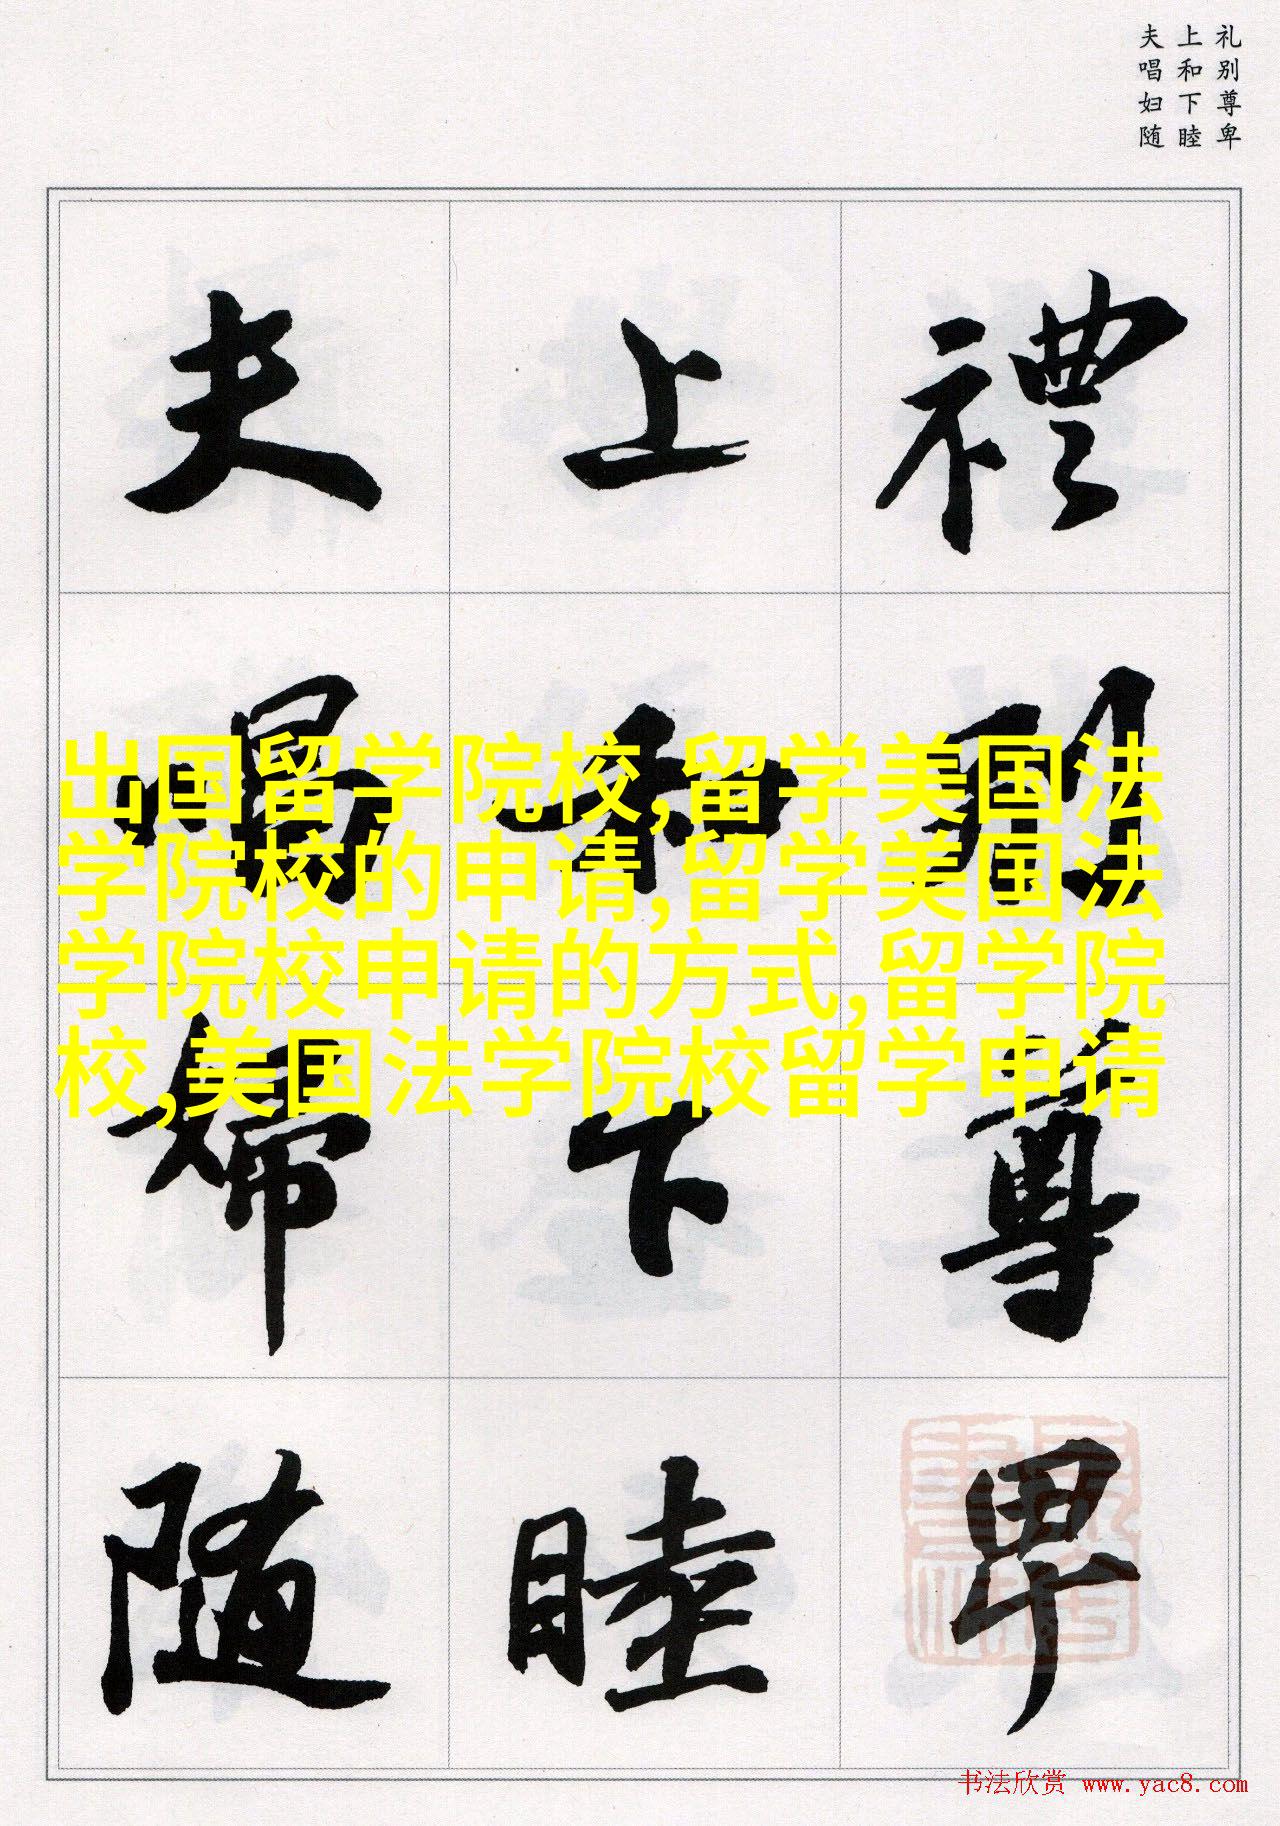 礼别尊卑
上和下睦
夫唱妇随
禮別尊卑
上和下睦
夫唱婦随
出国留学院校,留学美国法
学院校的申请,留学美国法
学院校申请的方式,留学院
校,美国法学院校留学申请
书法欣赏 www.yac8.com